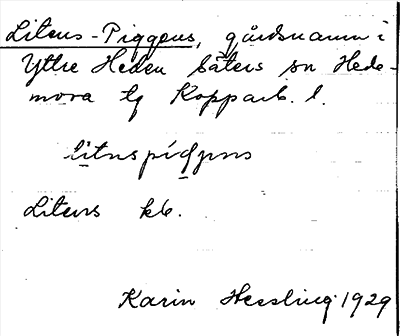 Litens-Piggens, gårdsnamn i
Yttre Heden Säters sn Hede-
mora tg Kopparb. l.
Litens kb.
Karin Hessling 1929